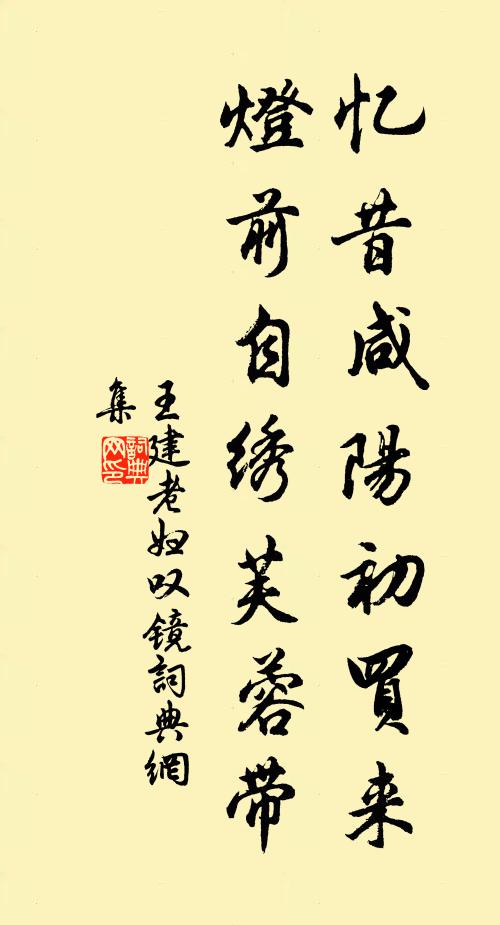 忆昔咸陽初買来
燈前自绣芙蓉带
王建老妇叹镜詞典網
集
詞典網